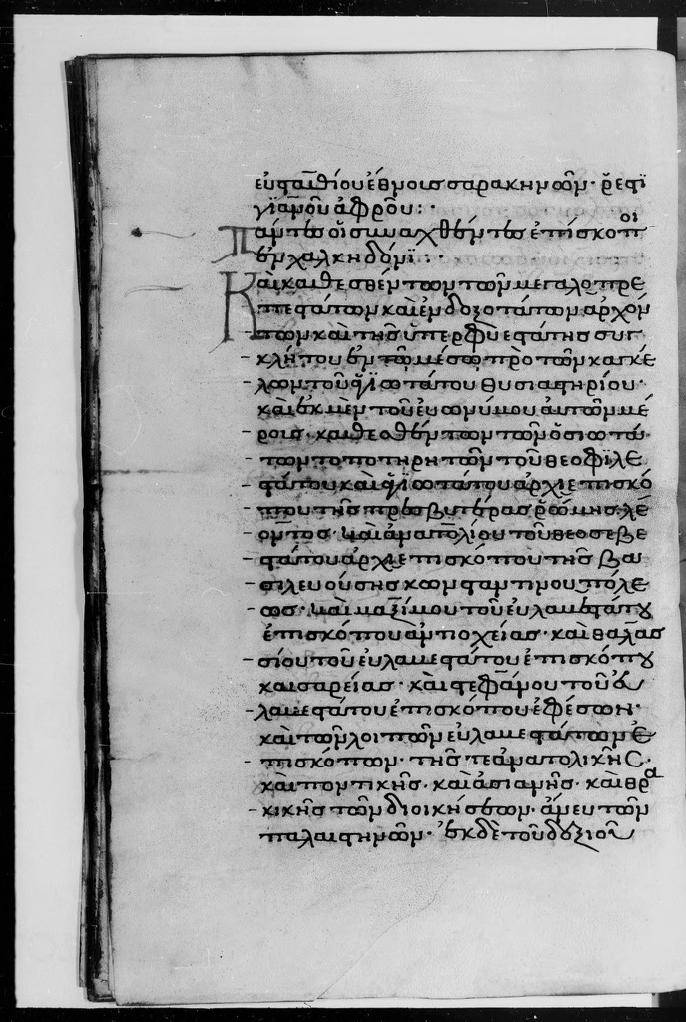 εὐσταθίου ἔθνους σαρακηνῶν· ῥεστϊ
γϊανοῦ ἄφρου:·
Πάντες οἱ συναχθέντες ἐπίσκοποι
ἐν χαλκηδόνϊ:·
Καὶ καθεσθέντων τῶν μεγαλοπρε
πεστάτων καὶ ἐνδοξοτάτων ἀρχόν
των καὶ τῆς ὑπερφυεστάτης συγ
κλήτου ἐν τῶ μέσω πρὸ τῶν καγκέ
λων τοῦ ἁγϊωτάτου θυσιαστηρίου·
καὶ ἐκ μὲν τοῦ εὐωνύμου αὐτῶν μέ
ρους· καθεσθέντων τῶν ὁσιωτά
των τοποτηρητῶν τοῦ θεοφϊλε
στάτου καὶ ἁγϊωτάτου ἀρχιεπισκό
που τῆς πρεσβυτέρας ῥώμης λέ
οντος· καὶ ἀνατολίου τοῦ θεοσεβε
στάτου ἀρχιεπισκόπου τῆς βα
σιλευούσης κωνσταντίνου πόλε
ως· καὶ μαξίμου τοῦ εὐλαβεστάτου
ἐπισκόπου ἀντιοχείας· καὶ θαλασ
σίου τοῦ εὐλαβεστάτου ἐπισκόπου
καισαρείας· καὶ στεφάνου τοῦ εὐ
λαβεστάτου ἐπισκόπου ἐφέσων·
καὶ τῶν λοιπῶν εὐλαβεστάτων ἐ
πισκόπων· τῆς τε ἀνατολικῆς·
καὶ ποντικῆς· καὶ ἀσιανῆς· καὶ θρα
κικῆς τῶν διοικήσεων· ἄνευ τῶν
παλαιστηνῶν· ἐκ δὲ τοῦ δεξιοῦ